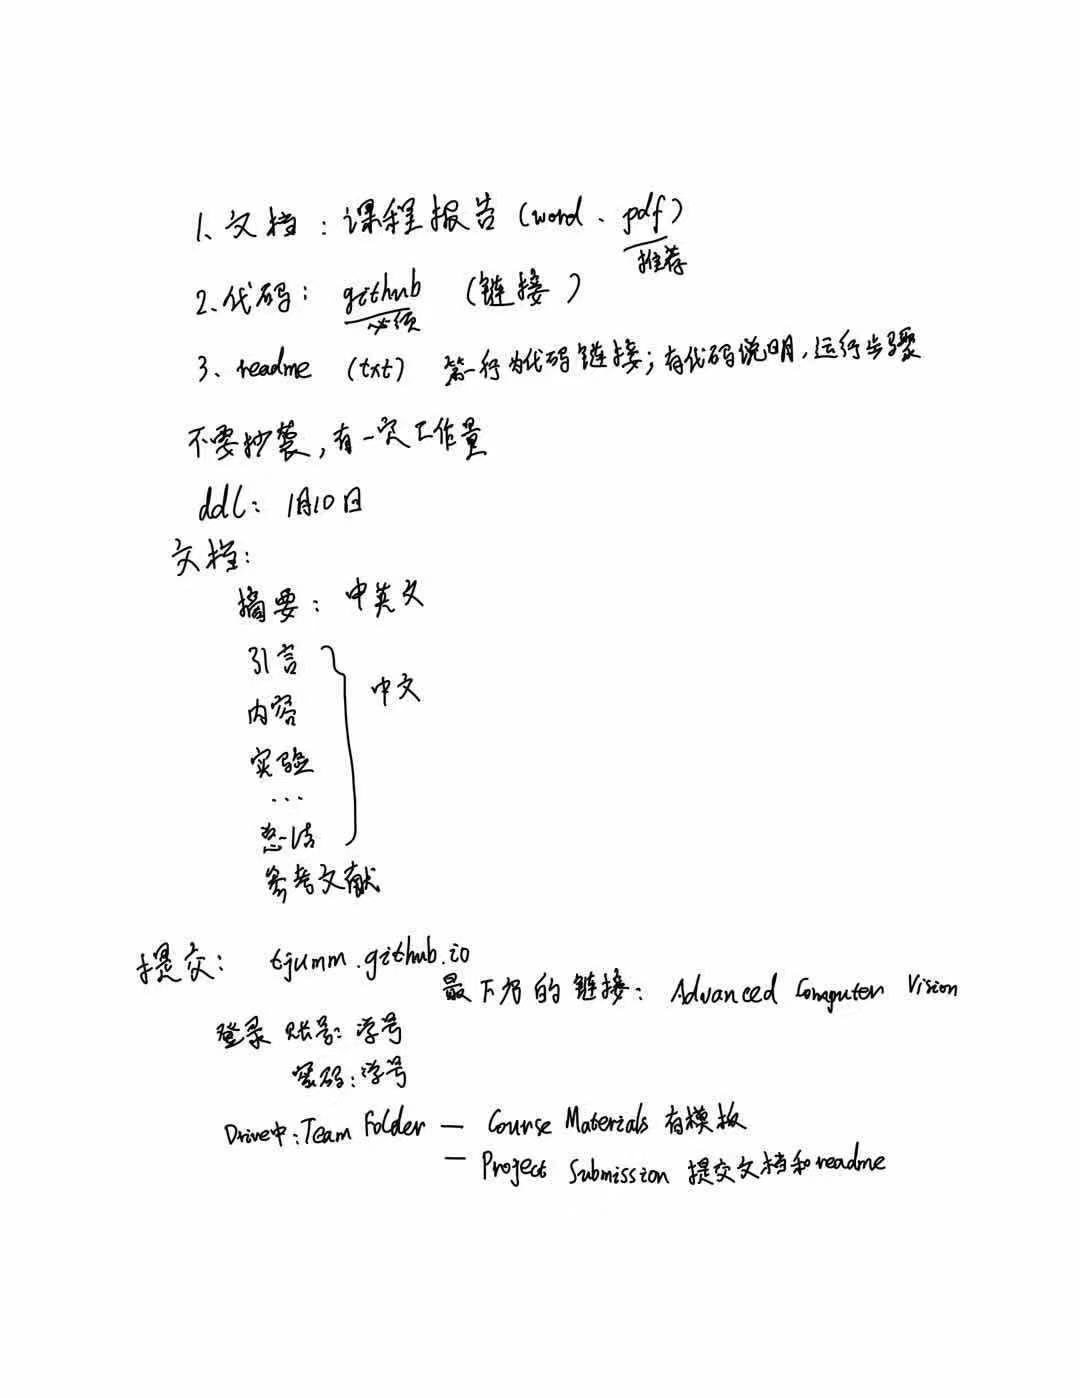 1、文档：课程报告（word、pdf）
推荐
2、代码：github （链接）
必须
3、readme （txt） 第一行为代码链接；有代码说明，运行步骤
不要抄袭，有一定工作量
ddl：1月10日
文档：
摘要：中英文
引言
内容
中文
实验
...
总结
参考文献
提交：tjumm.github.io
最下方的链接：Advanced Computer Vision
登录 账号：学号
密码：学号
Drive中：Team Folder — Course Materials 有模板
— Project Submission 提交文档和readme